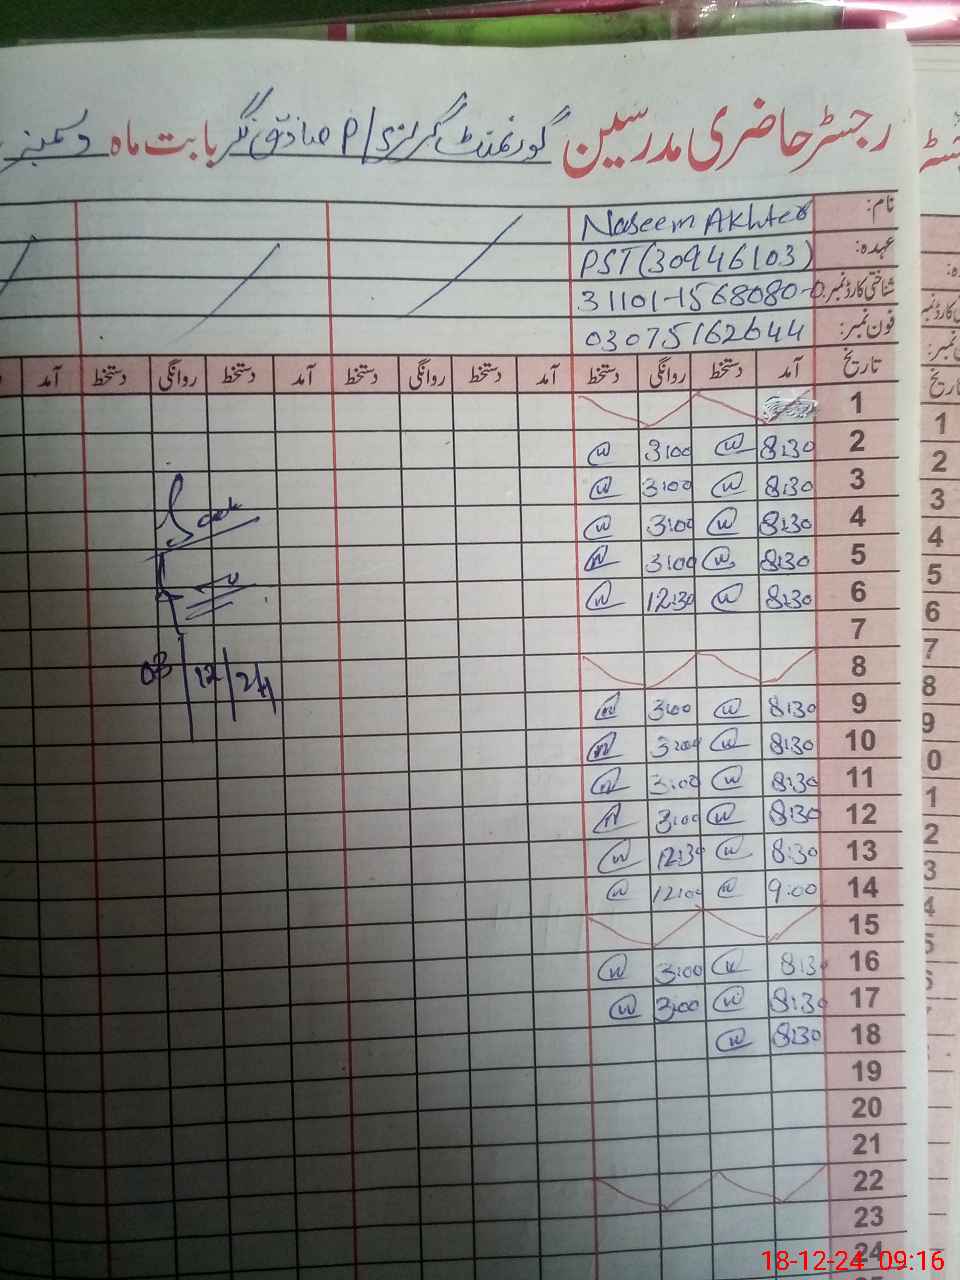 رجسٹر حاضری مدرسین گورنمنٹ گرلز P/S صادق نگر بابت ماہ دسمبر
نام: Naseem Akhter
عہدہ: PST(30946103)
شناختی کارڈ نمبر: 31101-1568080-0
فون نمبر: 03075162644
تاریخ آمد دستخط روانگی دستخط آمد دستخط روانگی دستخط آمد دستخط روانگی دستخط آمد
1
2 8:30 3:00
3 8:30 3:00
4 8:30 3:00
5 8:30 3:00
6 8:30 12:30
7
8
9 8:30 3:00
10 8:30 3:00
11 8:30 3:00
12 8:30 3:00
13 8:30 12:30
14 9:00 12:00
15
16 8:30 3:00
17 8:30 3:00
18 8:30
19
20
21
22
23
24
03/12/24
18-12-24 09:16